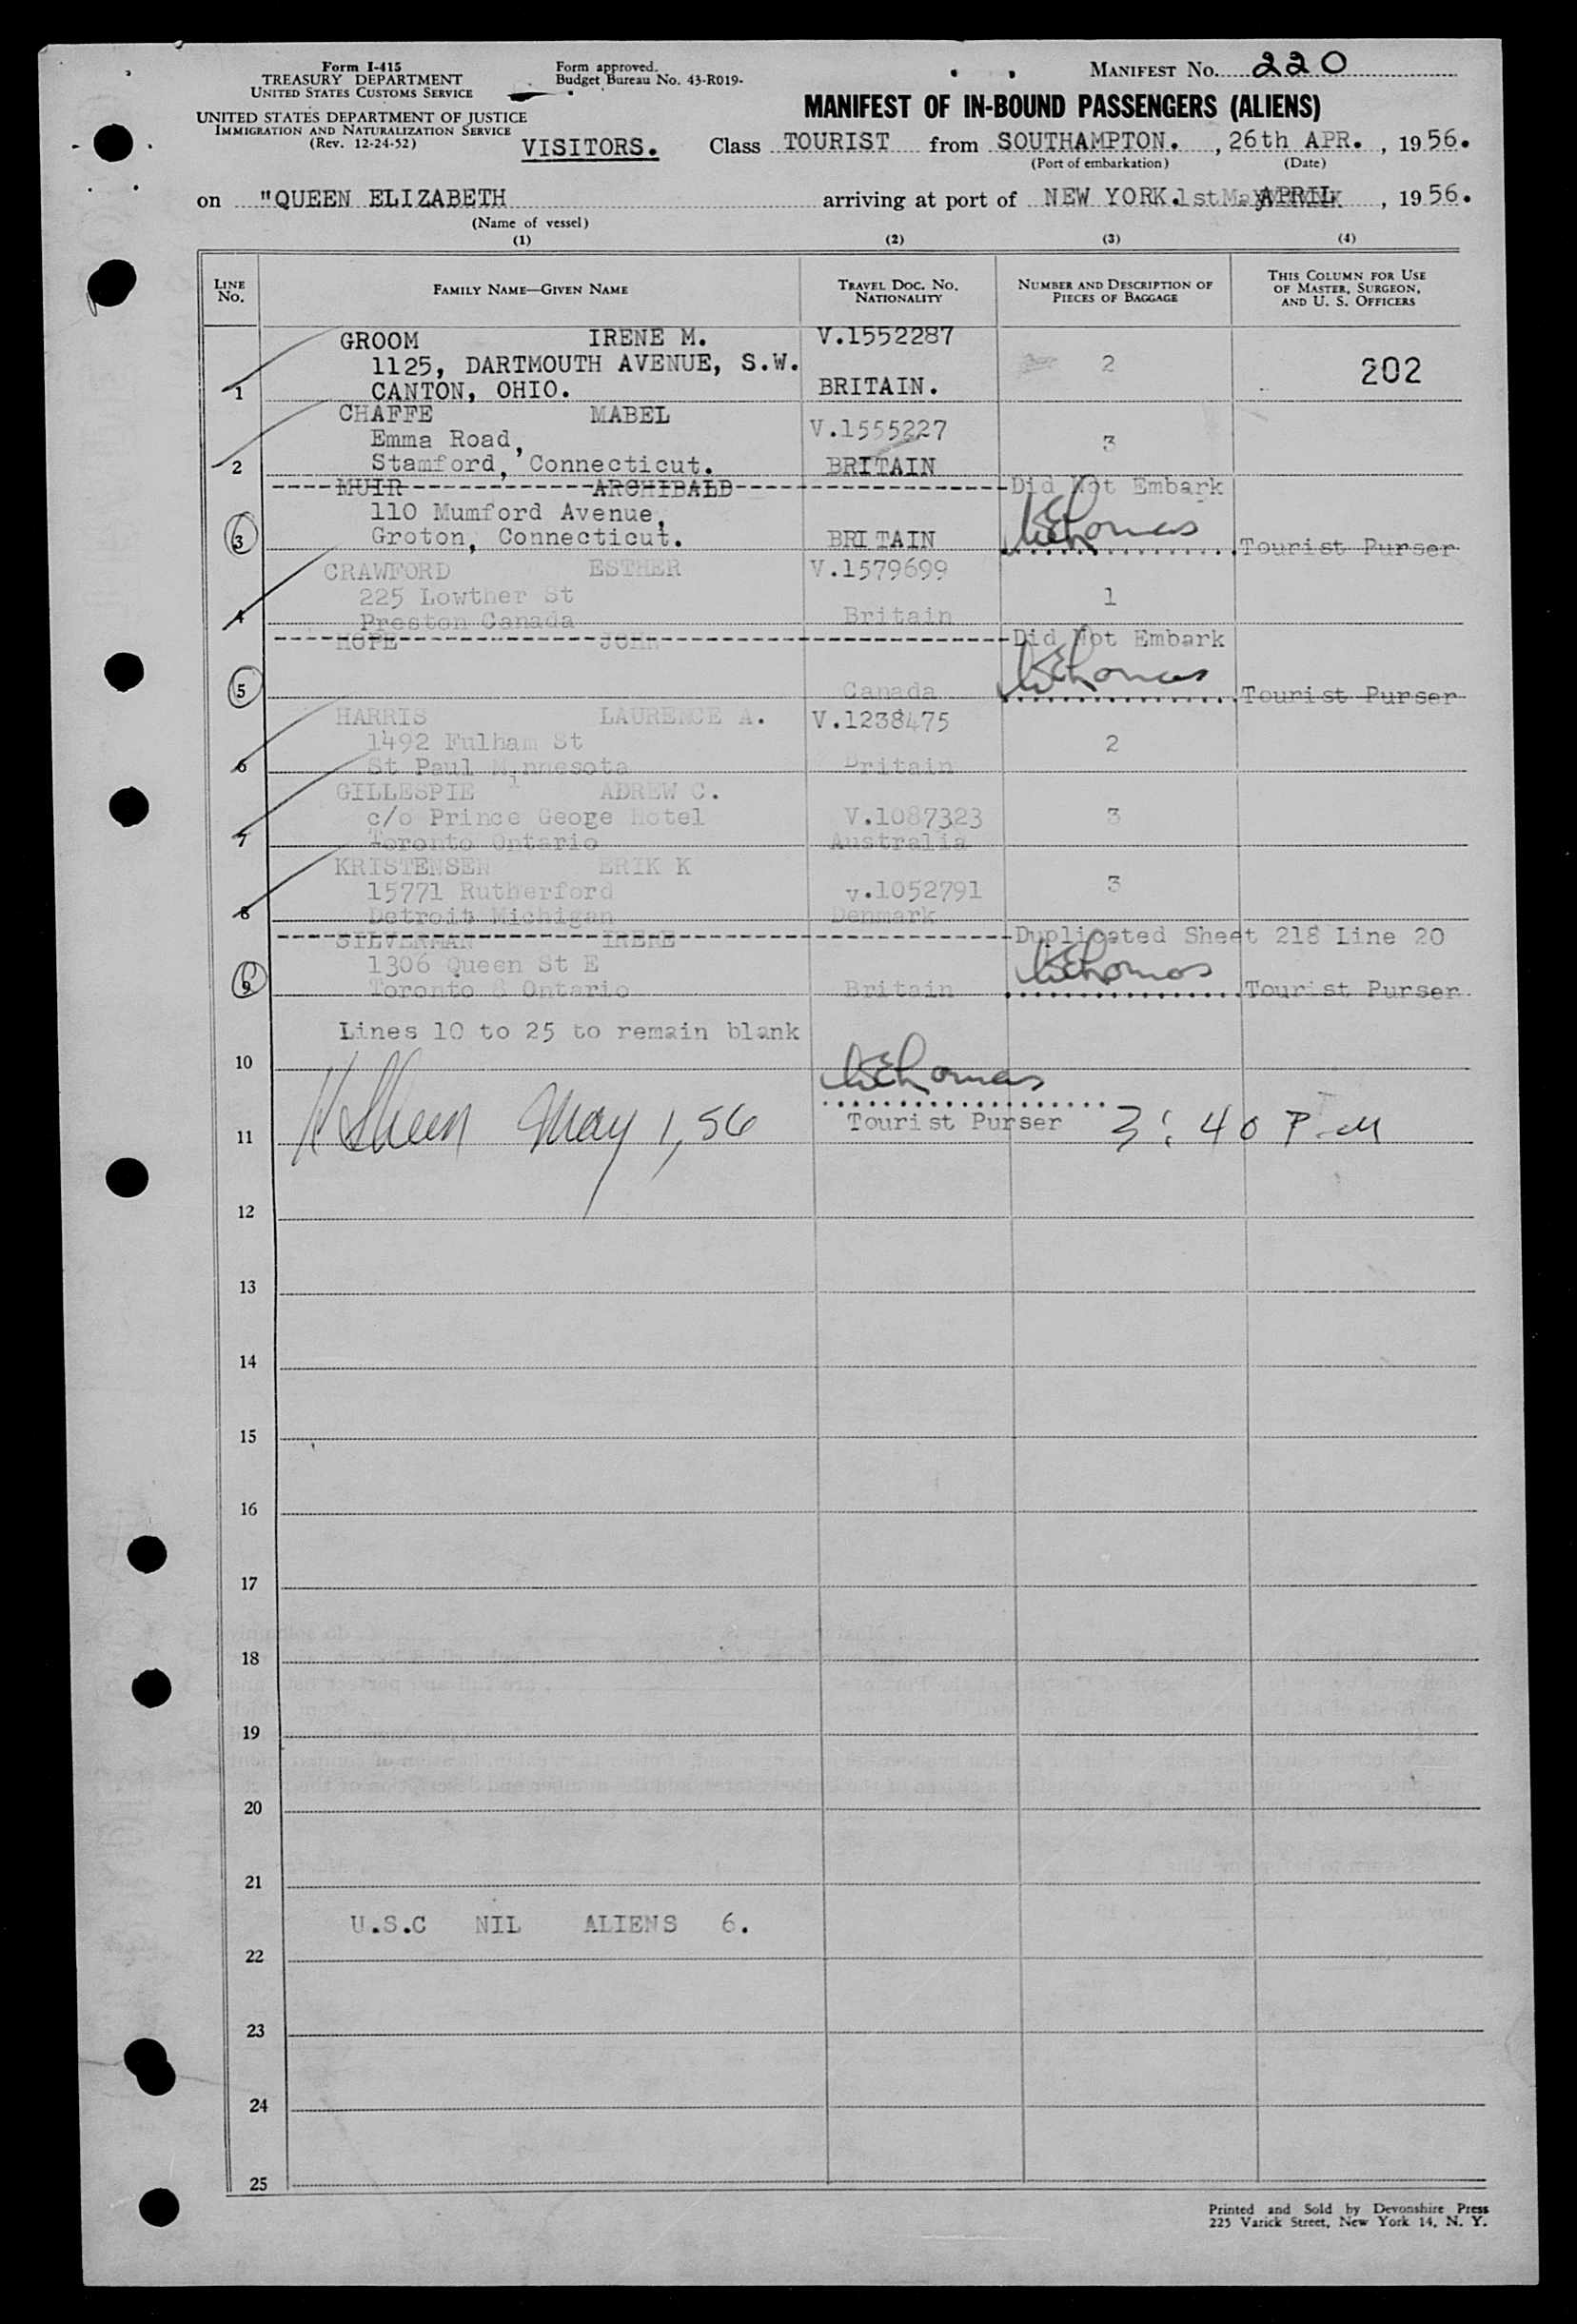 Form I-415
TREASURY DEPARTMENT
UNITED STATES CUSTOMS SERVICE
UNITED STATES DEPARTMENT OF JUSTICE
IMMIGRATION AND NATURALIZATION SERVICE
(Rev. 12-24-52)
Form approved.
Budget Bureau No. 43-R019-
MANIFEST NO. 220
MANIFEST OF IN-BOUND PASSENGERS (ALIENS)
VISITORS. Class TOURIST from SOUTHAMPTON. , 26th APR. , 1956.
(Port of embarkation) (Date)
on "QUEEN ELIZABETH arriving at port of NEW YORK. 1st May APRIL , 1956.
(Name of vessel)
(1) (2) (3) (4)
LINE NO. FAMILY NAME—GIVEN NAME TRAVEL DOC. NO. NATIONALITY NUMBER AND DESCRIPTION OF PIECES OF BAGGAGE THIS COLUMN FOR USE OF MASTER, SURGEON, AND U. S. OFFICERS
GROOM IRENE M. V.1552287
1125, DARTMOUTH AVENUE, S.W. 2 202
1 CANTON, OHIO. BRITAIN.
CHAFFE MABEL V.1555227
Emma Road, 3
2 Stamford, Connecticut. BRITAIN
MUIR ARCHIBALD Did Not Embark
110 Mumford Avenue,
3 Groton, Connecticut. BRITAIN Tourist Purser
CRAWFORD ESTHER V.1579699
225 Lowther St 1
4 Preston Canada Britain
HOPE JOHN Did Not Embark
5 Canada Tourist Purser
HARRIS LAURENCE A. V.1238475
1492 Fulham St 2
6 St Paul Minnesota Britain
GILLESPIE ADREW C.
c/o Prince Geoge Hotel V.1087323 3
7 Toronto Ontario Australia
KRISTENSEN ERIK K
15771 Rutherford v.1052791 3
8 Detroit Michigan Denmark
SILVERMAN IRENE Duplicated Sheet 218 Line 20
1306 Queen St E
9 Toronto 8 Ontario Britain Tourist Purser
Lines 10 to 25 to remain blank
10
May 1, 56 Tourist Purser 3:40 P.M
11
12
13
14
15
16
17
18
19
20
21
U.S.C NIL ALIENS 6.
22
23
24
25
Printed and Sold by Devonshire Press
225 Varick Street, New York 14, N. Y.